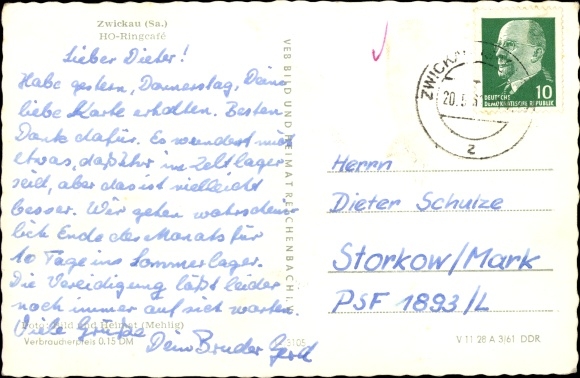 Zwickau (Sa.)
HO-Ringcafé
Lieber Dieter!
Habe gestern, Donnerstag, Deine
liebe Karte erhalten. Besten
Dank dafür. Es wundert mich
etwas, daß Ihr im Zeltlager
seid, aber das ist vielleicht
besser. Wir gehen wahrschein-
lich Ende des Monats für
10 Tage ins Sommerlager.
Die Vereidigung läßt leider
noch immer auf sich warten.
Viele Grüße
Dein Bruder Gerd
Foto: Bild und Heimat (Mehlig)
Verbraucherpreis 0,15 DM
VEB BILD UND HEIMAT REICHENBACH I.
ZWICKAU
20.
2
DEUTSCHE
DEMOKRATISCHE REPUBLIK
10
Herrn
Dieter Schulze
Storkow/Mark
PSF 1893/L
V 11 28 A 3/61 DDR